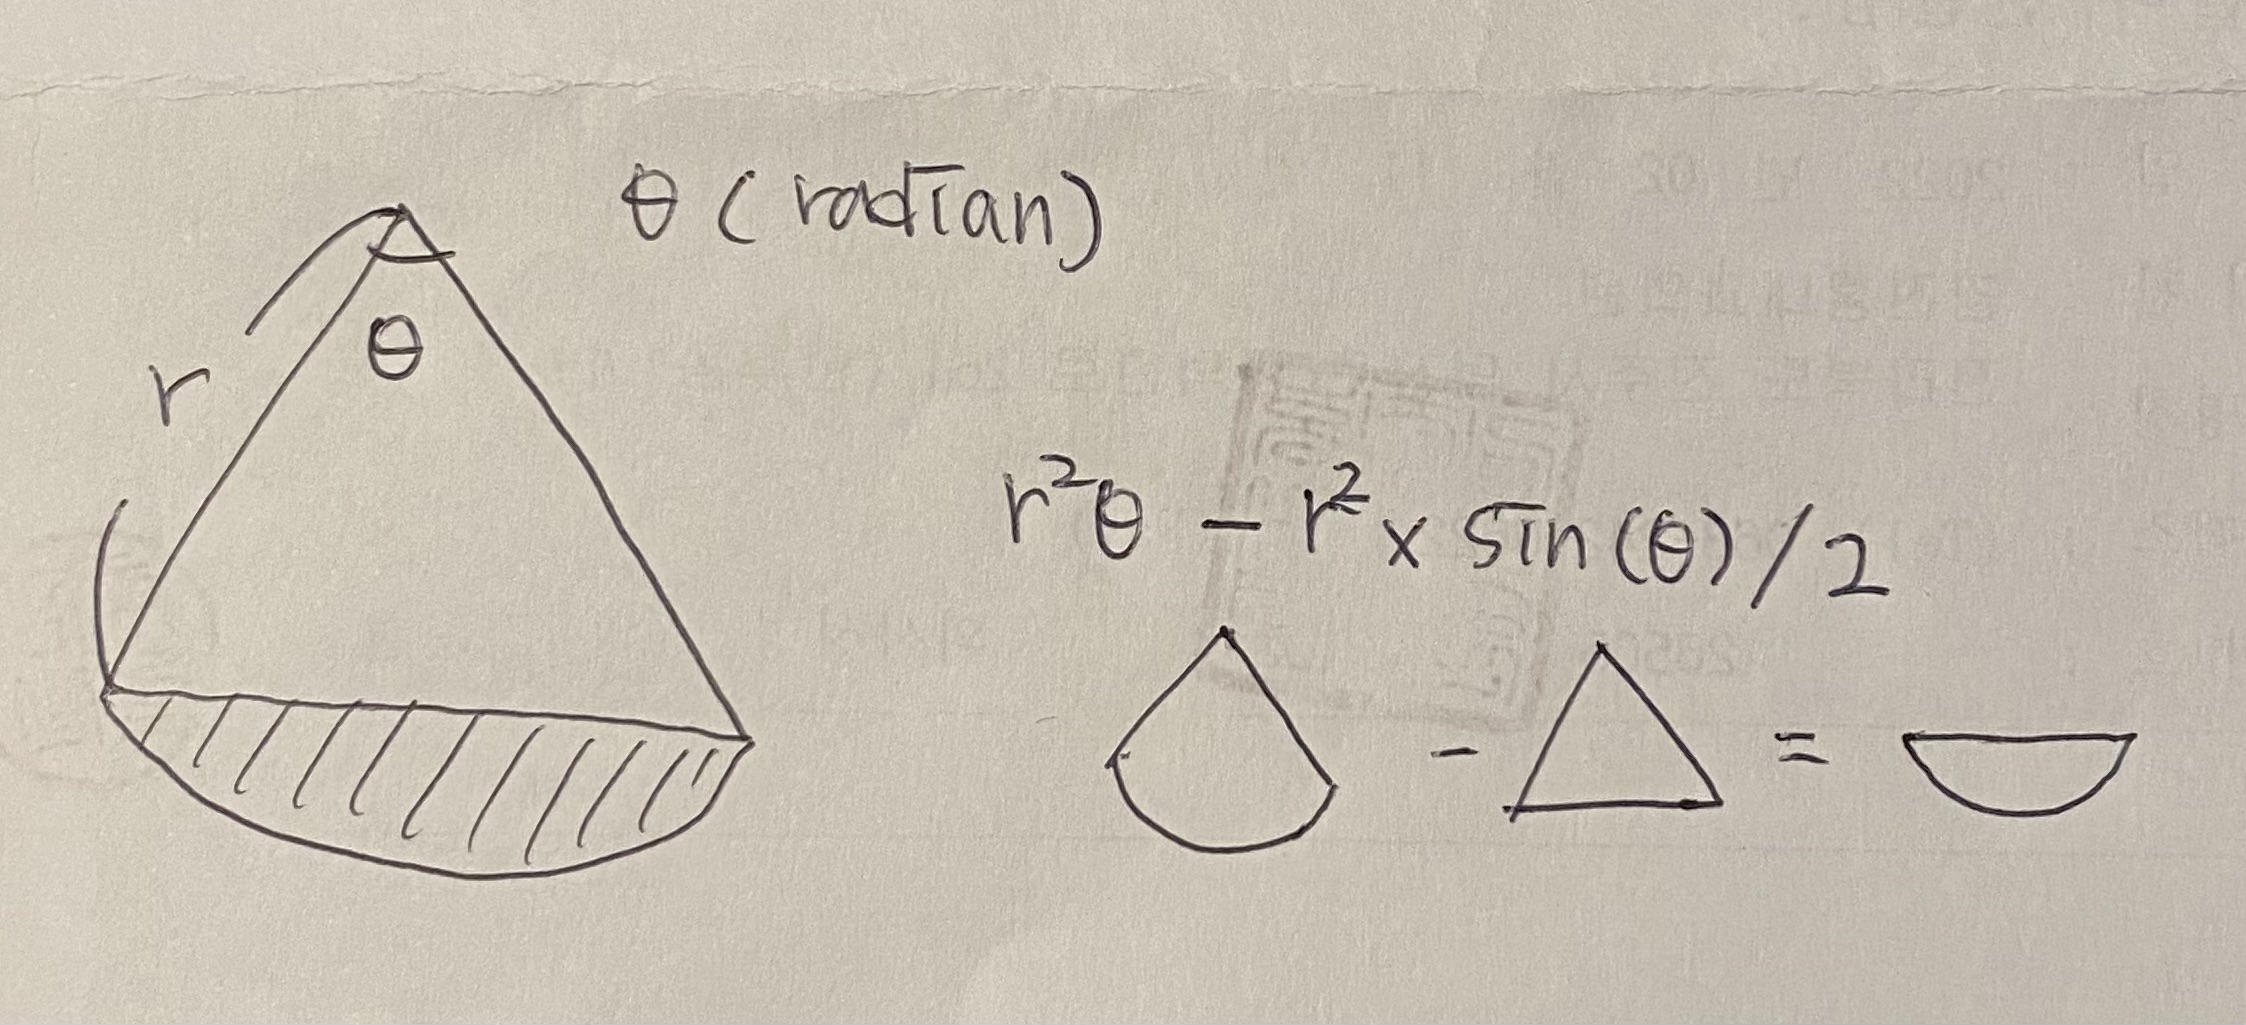 θ (radian)
θ
r
r²θ - r² x sin(θ)/2
- =